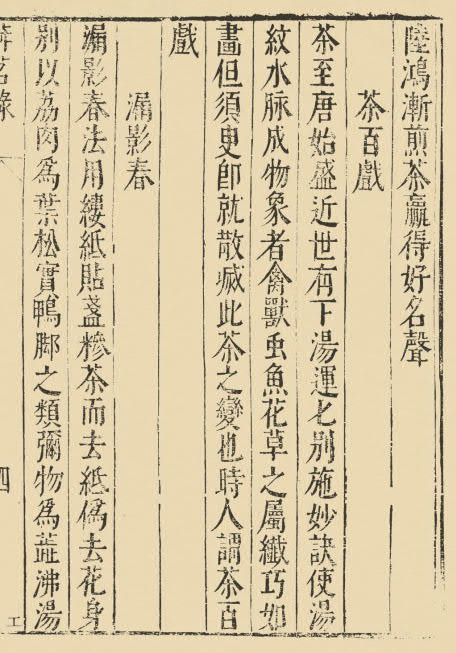 陸鴻漸煎茶贏得好名聲
茶百戲
茶至唐始盛近世有下湯運匕別施妙訣使湯
紋水脉成物象者禽獸虫魚花草之屬纖巧如
畫但須臾卽就散㓕此茶之變也時人謂茶百
戲
漏影春
漏影春法用縷紙貼盞糝茶而去紙僞去花身
別以荔肉爲葉松實鴨脚之類彌物爲蘂沸湯
茗錄
四
工